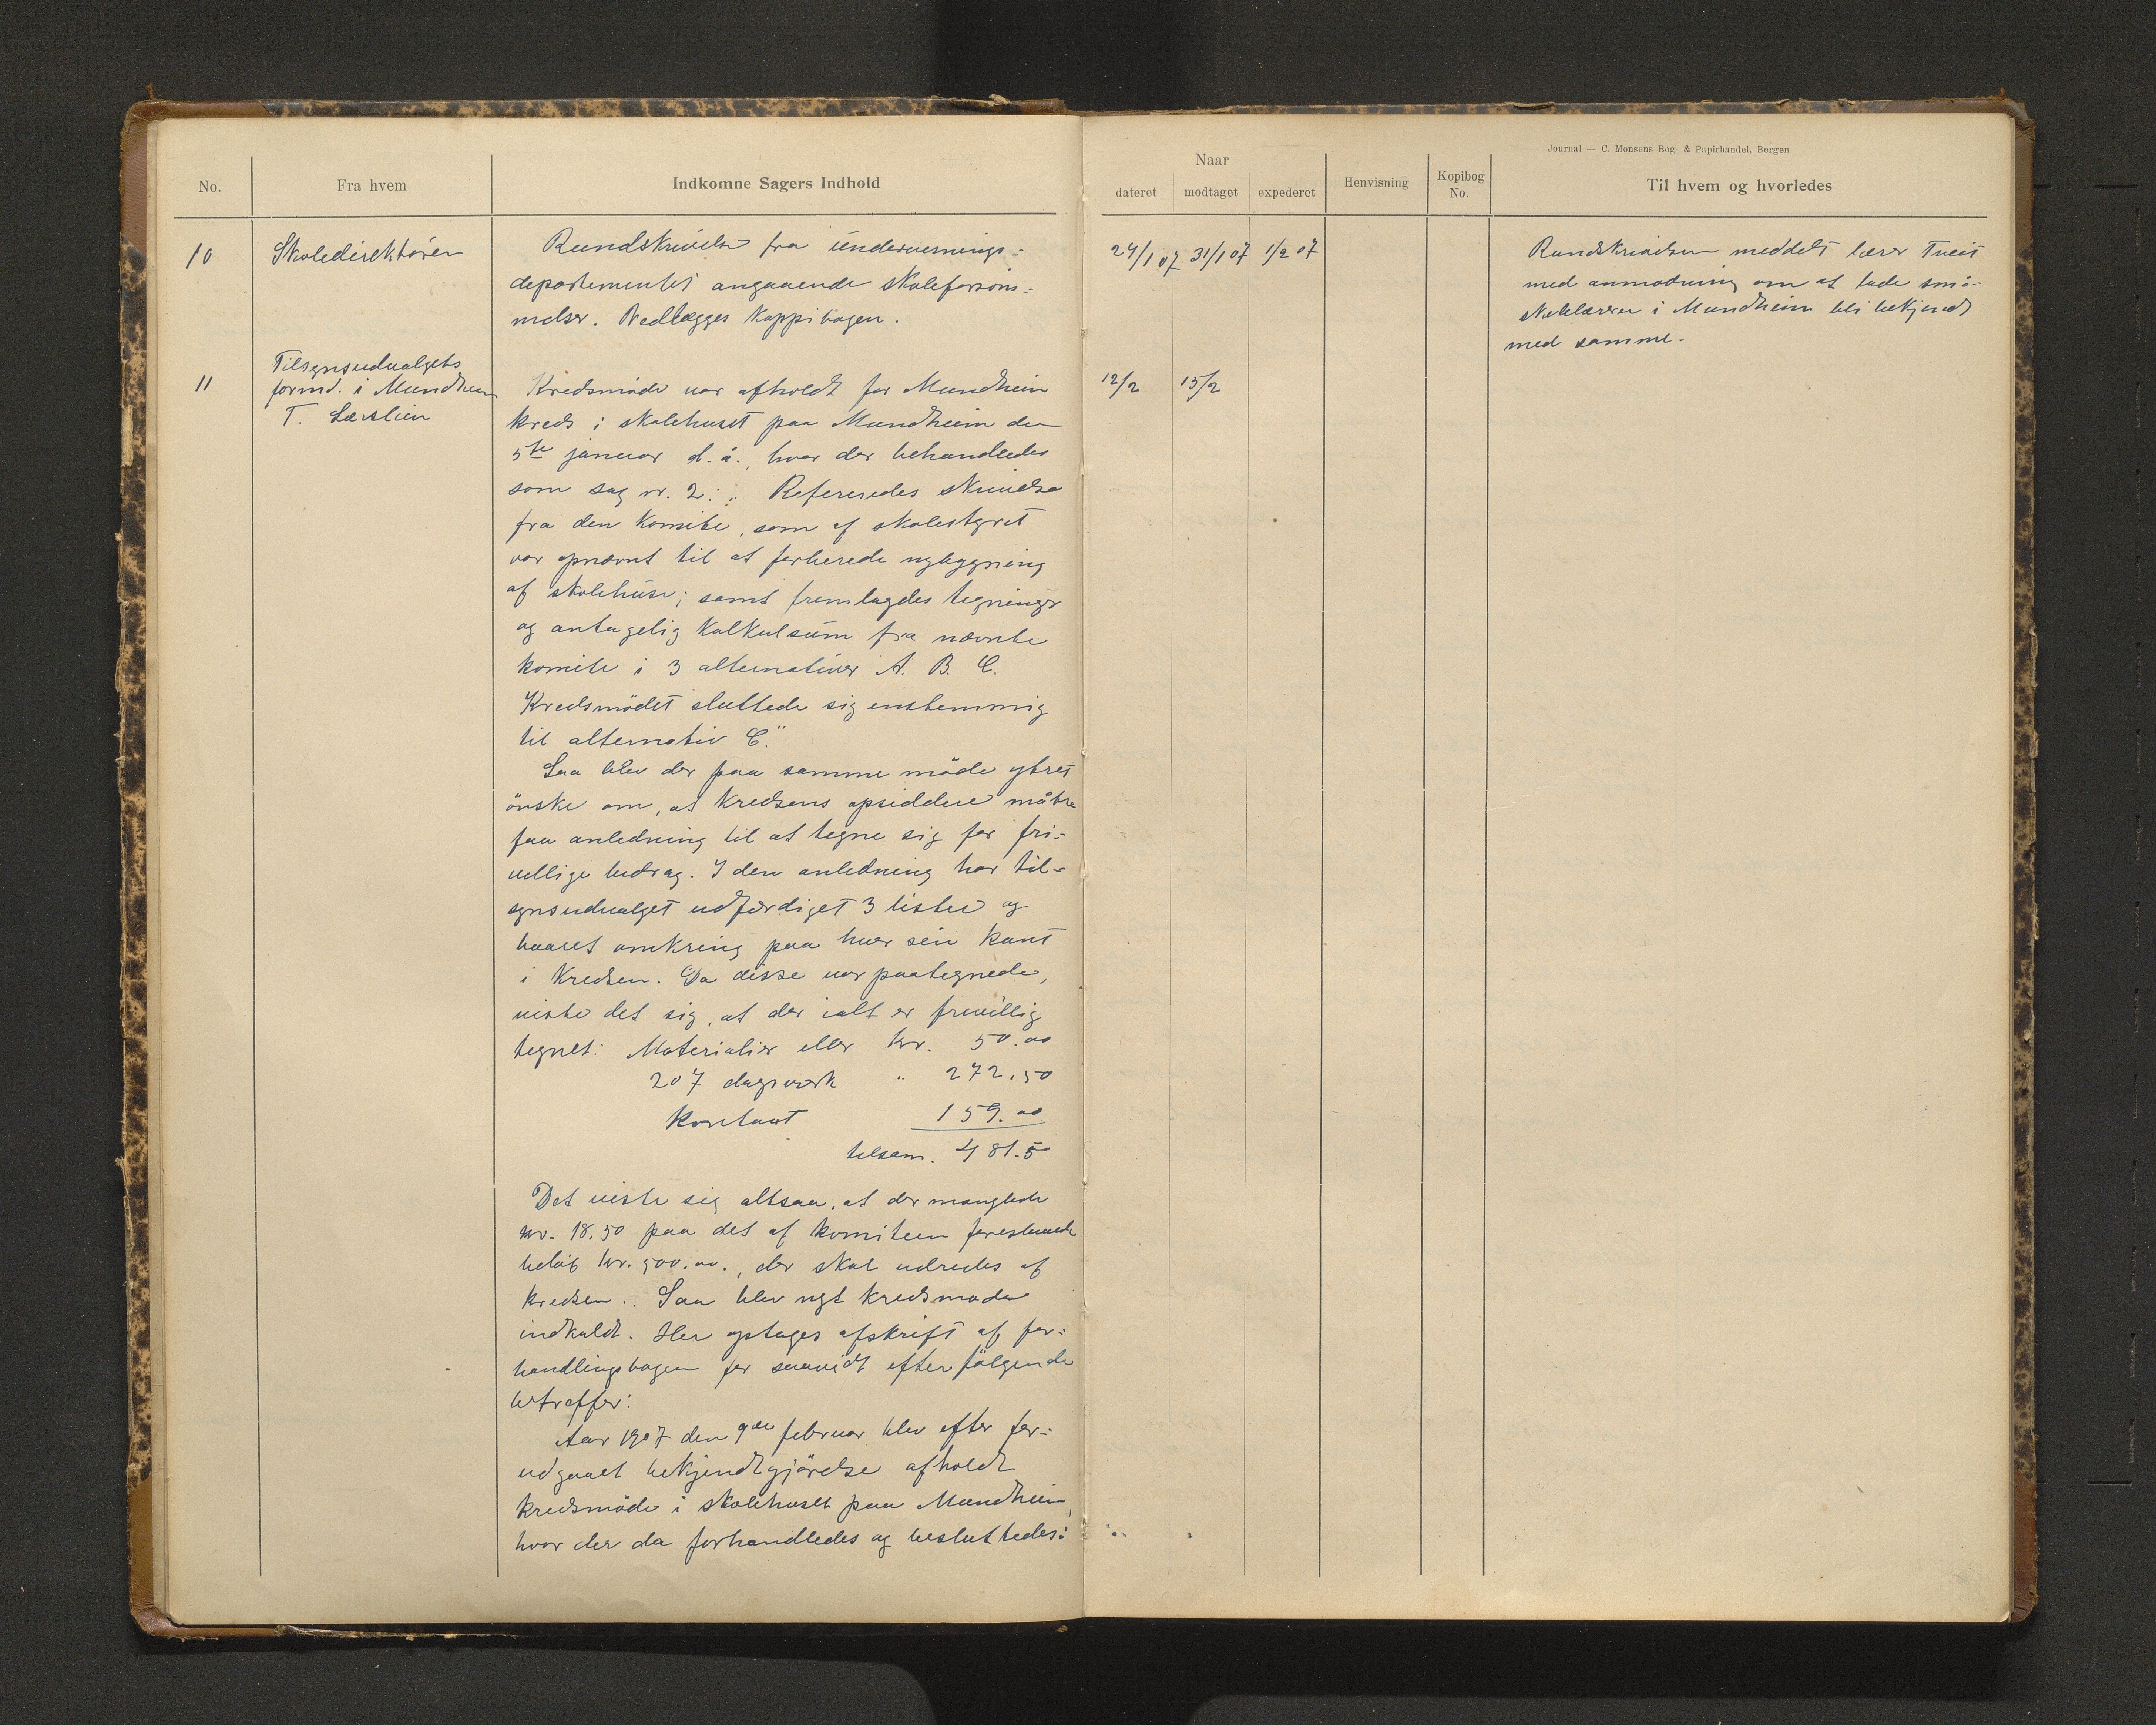 Journal — C. Monsens Bog- & Papirhandel, Bergen
No. Fra hvem Indkomne Sagers Indhold
Naar
dateret modtaget expederet Henvisning Kopibog No. Til hvem og hvorledes
10 Skoledirektören
Rundskrivelse fra undervisnings-
departementet angaaende skoleforsöm-
melser. Vedlægges Koppibogen.
24/1 07 31/1 07 1/2 07
Rundskrivelsen meddelt lærer Tveit
med anmodning om at lade små-
skolelæreren i Mundheim bli bekjendt
med samme.
11 Tilsynsudvalgets
formd. i Mundheim
T.
Kredsmöde var afholdt for Mundheim
kreds i skolehuset paa Mundheim den
5te januar d. å., hvor der behandledes
som sag nr. 2: „Refereredes skrivelse
fra den Komite, som af skolestyret
var opnævnt til at forberede nybygning
af skolehuse; samt fremlagdes tegninger
og antagelig Kalkulsum fra nævnte
komite i 3 alternativer A. B. C.
Kredsmödet sluttede sig enstemmig
til alternativ C."
Saa blev der paa samme möde ytret
önske om, at Kredsens opsiddere måtte
faa anledning til at tegne sig for fri-
villige bidrag. I den anledning har til-
synsudvalget udfærdiget 3 lister og
baaret omkring paa hver sin kant
i Kredsen. Da disse var paategnede,
viste det sig, at der ialt er frivillig
tegnet: Materialier eller kr. 50.00
207 dagsverk " 272.50
Kontant 159.00
tilsam. 481.50
Det viste sig altsaa, at der manglede
kr. 18.50 paa det af komiteen foreslaaede
beløb kr. 500.00., der skal udredes af
kredsen. Saa blev nyt kredsmöde
indkaldt. Her optages afskrift af for-
handlingsbogen for saavidt efterfölgende
betræffer:
Aar 1907 den 9de februar blev efter for-
udgaaet bekjendtgjörelse afholdt
kredsmöde i skolehuset paa Mundheim,
hvor der da forhandledes og besluttedes:
12/2 15/2